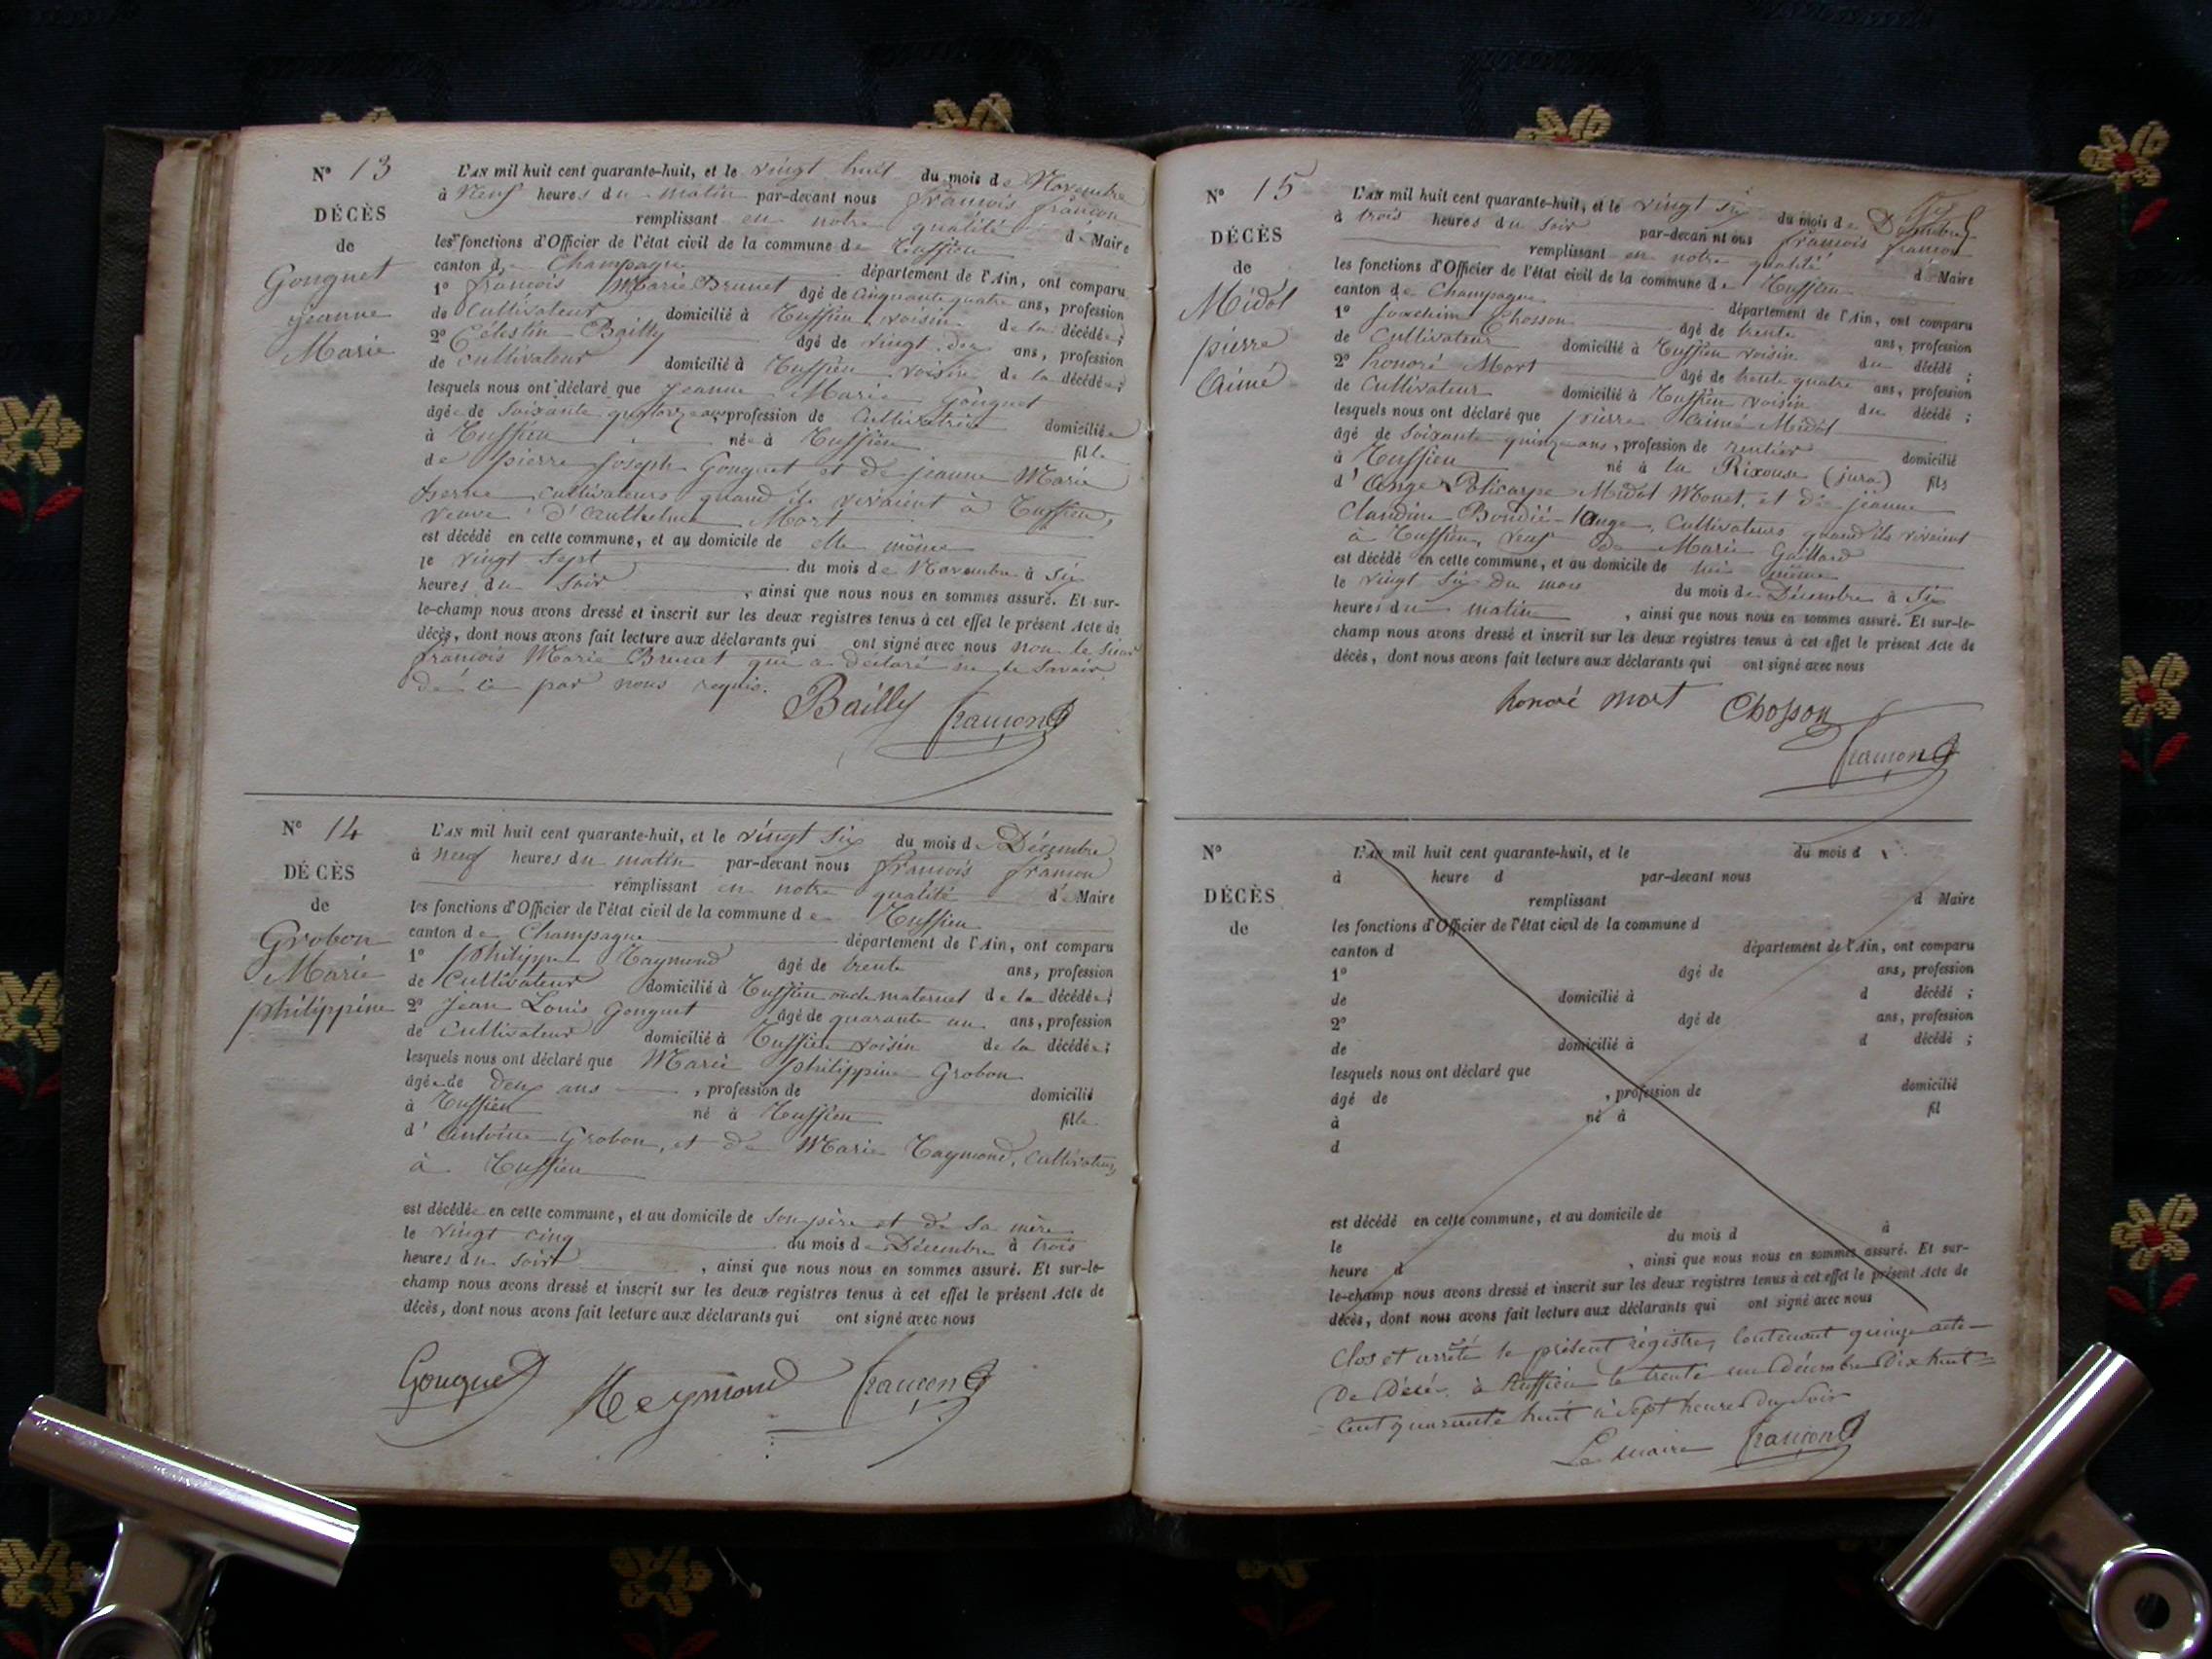 N° 13
DÉCÈS
de
Gouguet
jeanne
Marie
L'AN mil huit cent quarante-huit, et le vingt huit du mois de Novembre
à Neuf heures du matin par-devant nous françois françon
remplissant en notre qualité de Maire
les fonctions d'Officier de l'état civil de la commune de Ruffieu
canton de Champagne département de l'Ain, ont comparu
1° françois Marie Brunet âgé de cinquante quatre ans, profession
de Cultivateur domicilié à Ruffieu voisin de la décédée;
2° Célestin Bailly âgé de vingt ans, profession
de cultivateur domicilié à Ruffieu voisin de la décédée;
lesquels nous ont déclaré que jeanne Marie Gouguet
âgée de soixante quatorze ans, profession de Cultivatrice domiciliée
à Ruffieu née à Ruffieu fille
de pierre joseph Gouguet et de jeanne Marie
cultivateurs quand ils vivaient à Ruffieu,
veuve d'Anthelme Mort
est décédé en cette commune, et au domicile de elle même
le vingt sept du mois de Novembre à six
heures du soir, ainsi que nous nous en sommes assuré. Et sur-
le-champ nous avons dressé et inscrit sur les deux registres tenus à cet effet le présent Acte de
décès, dont nous avons fait lecture aux déclarants qui ont signé avec nous non le sieur
françois Marie Brunet qui a déclaré ne le savoir
de ce par nous requis.
Bailly françon
N° 14
DÉCÈS
de
Grobon
Marie
philippine
L'AN mil huit cent quarante-huit, et le vingt six du mois de Décembre
à neuf heures du matin par-devant nous françois françon
remplissant en notre qualité de Maire
les fonctions d'Officier de l'état civil de la commune de Ruffieu
canton de Champagne département de l'Ain, ont comparu
1° philippe Raymond âgé de trente ans, profession
de Cultivateur domicilié à Ruffieu oncle maternel de la décédée;
2° jean Louis Gouguet âgé de quarante un ans, profession
de Cultivateur domicilié à Ruffieu voisin de la décédée;
lesquels nous ont déclaré que Marie philippine Grobon
âgée de deux ans, profession de domicilié
à Ruffieu né à Ruffieu fille
d'antoine Grobon, et de Marie Raymond, cultivateurs
à Ruffieu
est décédée en cette commune, et au domicile de son père et de sa mère
le vingt cinq du mois de Décembre à trois
heures du soir, ainsi que nous nous en sommes assuré. Et sur-le-
champ nous avons dressé et inscrit sur les deux registres tenus à cet effet le présent Acte de
décès, dont nous avons fait lecture aux déclarants qui ont signé avec nous
Gouguet Reymond françon
N° 15
DÉCÈS
de
Midol
pierre
aimé
L'AN mil huit cent quarante-huit, et le vingt six du mois de Décembre
à trois heures du soir par-devant nous françois françon
remplissant en notre qualité de Maire
les fonctions d'Officier de l'état civil de la commune de Ruffieu
canton de Champagne département de l'Ain, ont comparu
1° joachim Chosson âgé de trente ans, profession
de Cultivateur domicilié à Ruffieu voisin du décédé;
2° honoré Mort âgé de trente quatre ans, profession
de Cultivateur domicilié à Ruffieu voisin du décédé;
lesquels nous ont déclaré que pierre aimé Midol
âgé de soixante quinze ans, profession de rentier domicilié
à Ruffieu né à la Rixouse (jura) fils
d'Ange Policarpe Midol Monet, et de jeanne
Claudine Cultivateurs quand ils vivaient
à Ruffieu, veuf de Marie Gaillard
est décédé en cette commune, et au domicile de lui même
le vingt six du mois du mois de Décembre à six
heures du matin, ainsi que nous nous en sommes assuré. Et sur-le-
champ nous avons dressé et inscrit sur les deux registres tenus à cet effet le présent Acte de
décès, dont nous avons fait lecture aux déclarants qui ont signé avec nous
honoré mort Chosson
françon
N°
DÉCÈS
de
L'AN mil huit cent quarante-huit, et le du mois d
à heure d par-devant nous
remplissant d Maire
les fonctions d'Officier de l'état civil de la commune d
canton d département de l'Ain, ont comparu
1° âgé de ans, profession
de domicilié à d décédé ;
2° âgé de ans, profession
de domicilié à d décédé ;
lesquels nous ont déclaré que
âgé de , profession de domicilié
à né à fil
d
est décédé en cette commune, et au domicile de
le du mois d à
heure d , ainsi que nous nous en sommes assuré. Et sur-
le-champ nous avons dressé et inscrit sur les deux registres tenus à cet effet le présent Acte de
décès, dont nous avons fait lecture aux déclarants qui ont signé avec nous
Clos et arrêté le présent régistre, Contenant quinze acte
De Décès, à Ruffieu le trente un Décembre Dix huit
Cent quarante huit à Sept heures Du Soir
Le maire françon